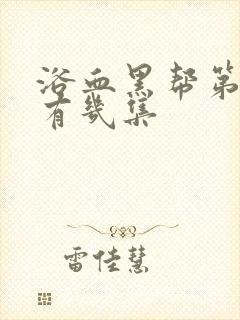 浴血黑帮第
有几集
雷佳慧